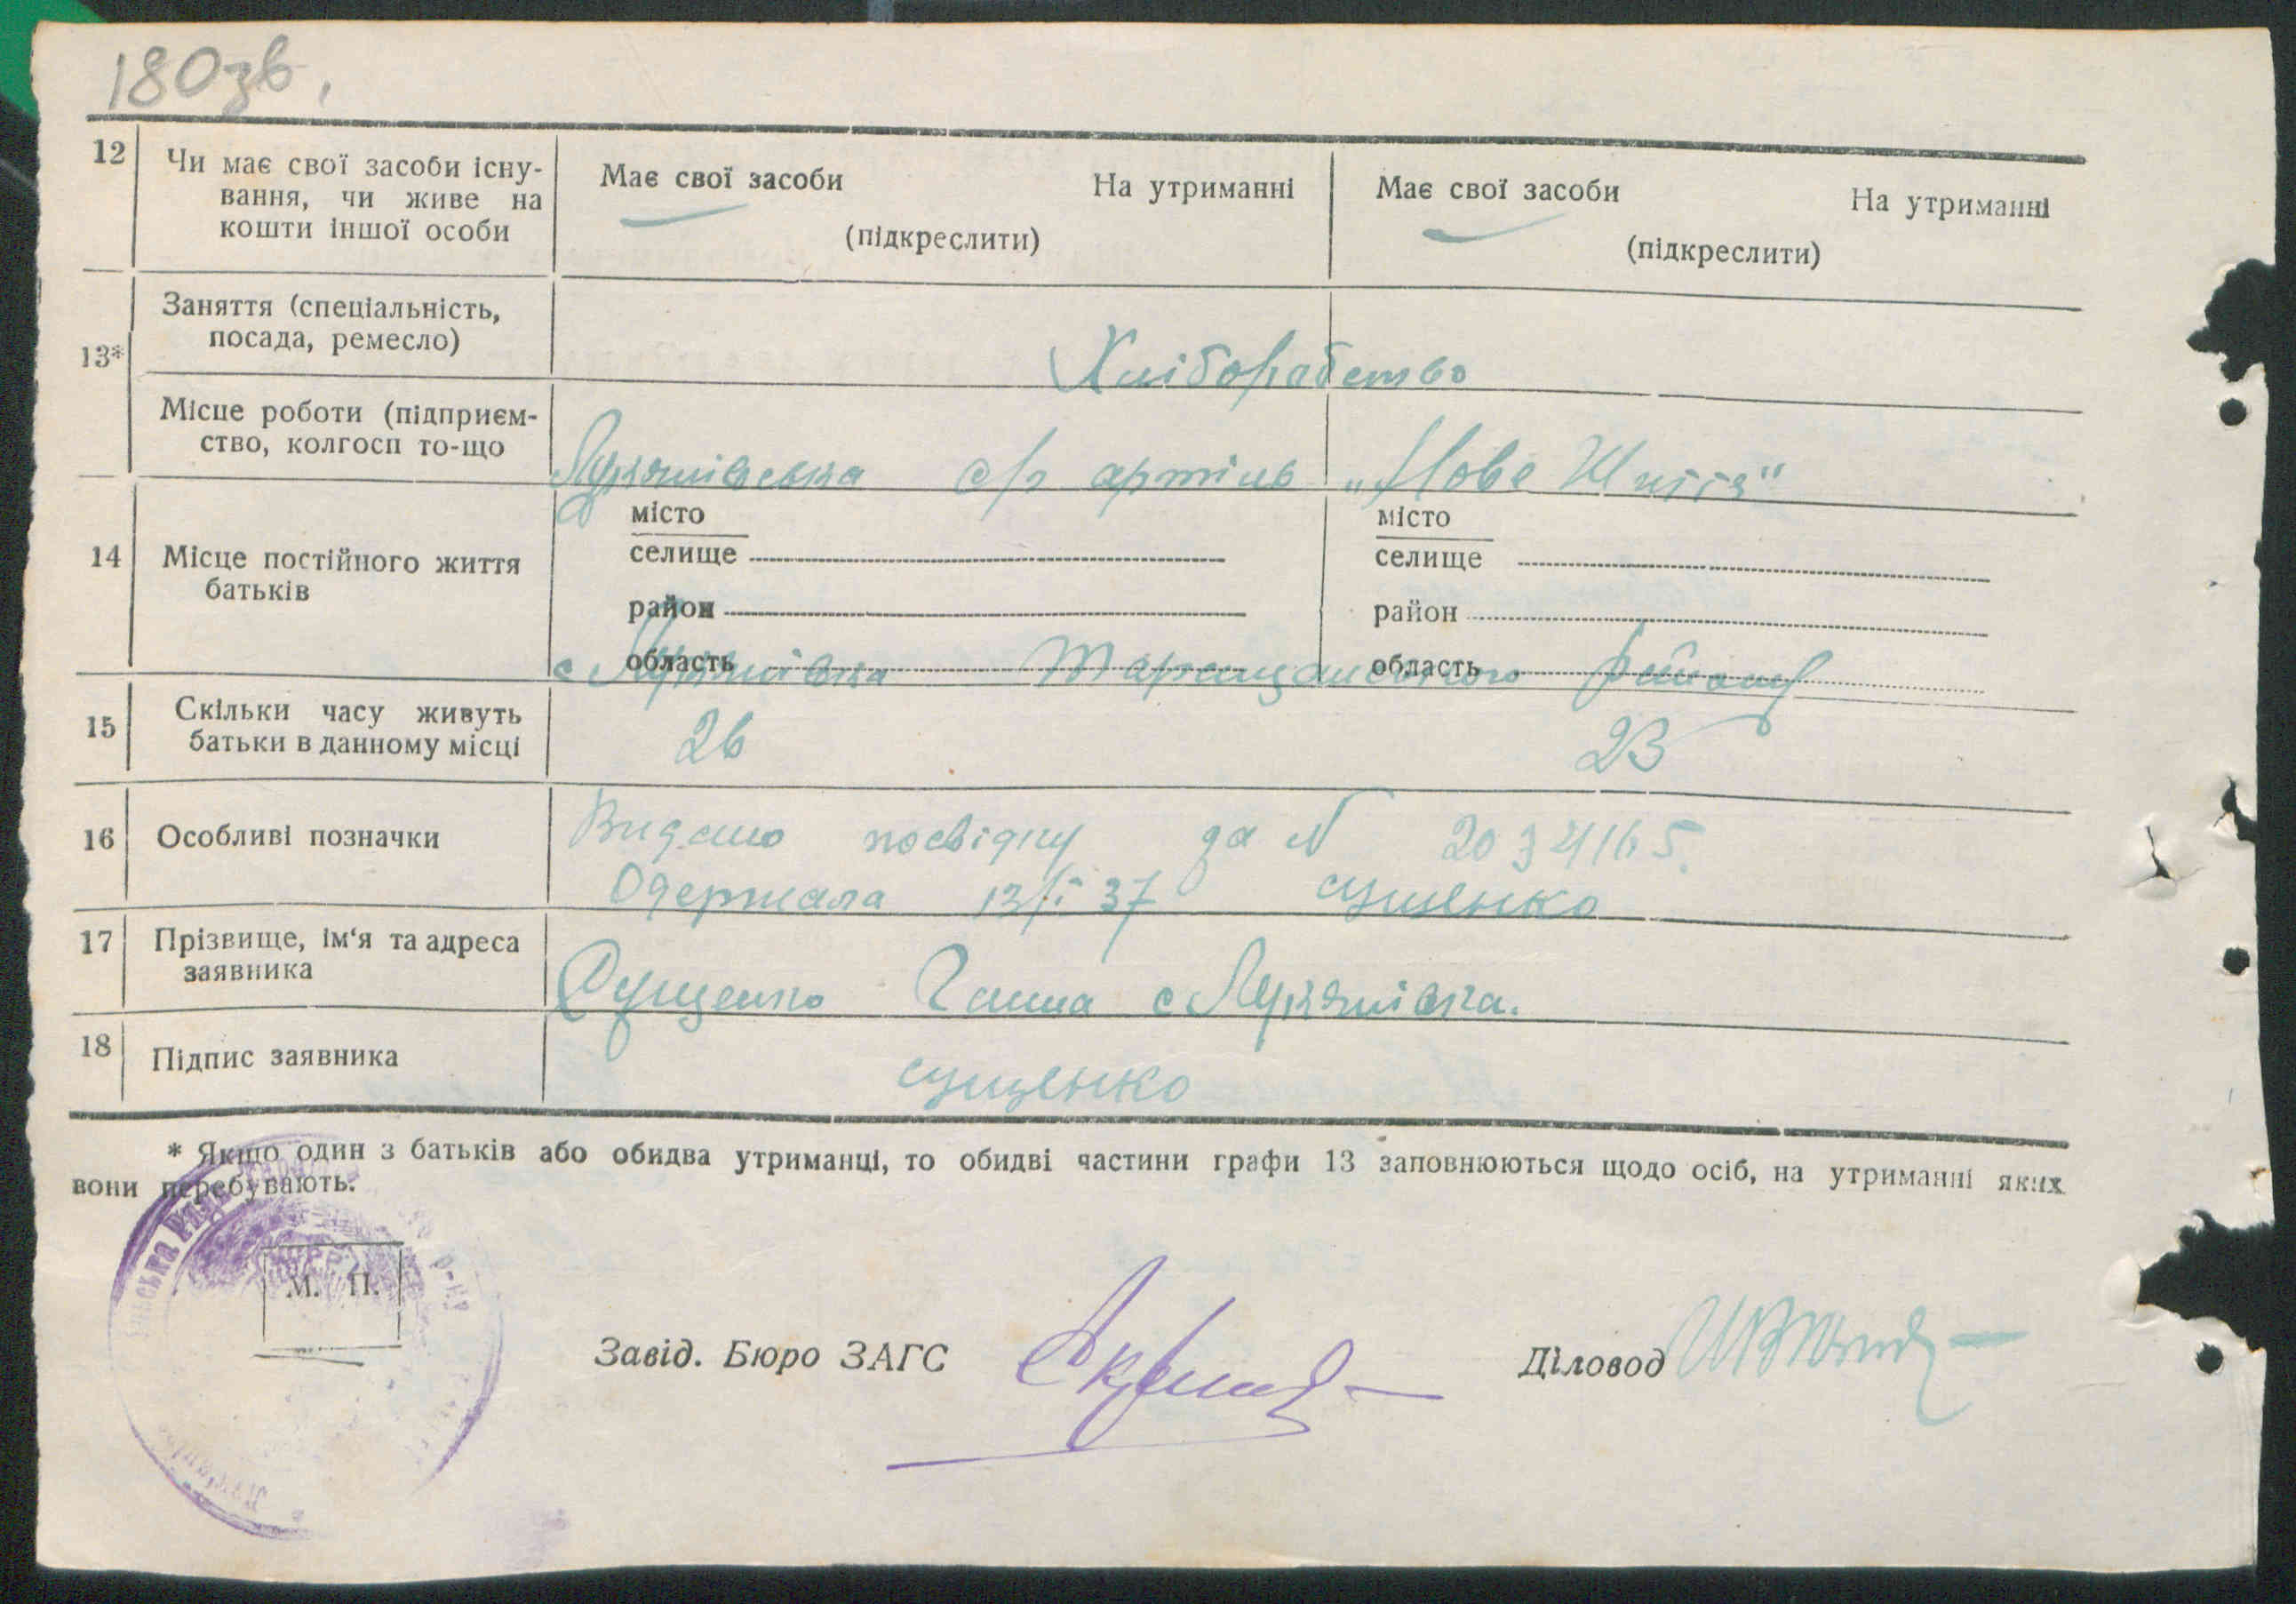 180зв.
12 Чи має свої засоби існу- Має свої засоби На утриманні Має свої засоби На утриманні
вання, чи живе на
кошти іншої особи (підкреслити) (підкреслити)
13* Заняття (спеціальність,
посада, ремесло) Хліборобство
Місце роботи (підприєм-
ство, колгосп то-що Лук'янівська с/г артіль „Нове Життя"
14 Місце постійного життя
батьків
місто місто
селище селище
район район
область область
с Лук'янівка Таращанського району
15 Скільки часу живуть
батьки в данному місці 26 23
16 Особливі позначки Видано посвідку за N 2034165.
Одержала 13/I 37 сущенко
17 Прізвище, ім'я та адреса
заявника Сущенко Ганна с Лук'янівка.
18 Підпис заявника сущенко
* Якщо один з батьків або обидва утриманці, то обидві частини графи 13 заповнюються щодо осіб, на утриманні яких
вони перебувають.
М. П.
Завід. Бюро ЗАГС Діловод